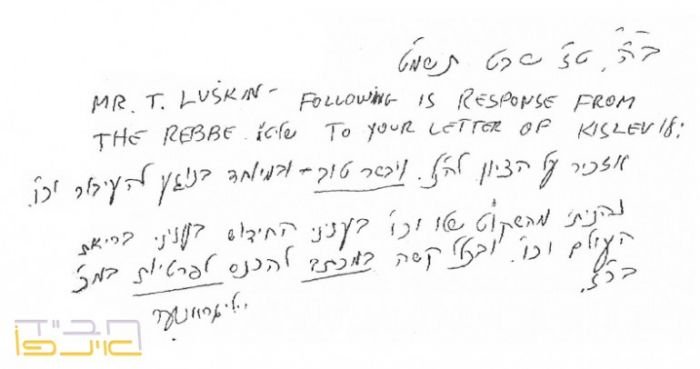 ב"ה, טז שבט תשמ"ט
MR. T. LUSKIN - FOLLOWING IS RESPONSE FROM
THE REBBE שליט"א TO YOUR LETTER OF KISLEV
אזכיר על הציון להצ. ויבשר טוב - ובמיוחד בנוגע להעיבור וכו'.
נהניתי מהשקו"ט שלו וכו' בעניני החידוש בעניני בריאת
העולם וכו'. קשה במכתב להכנס לפרטיות
חב"ד
אינפו